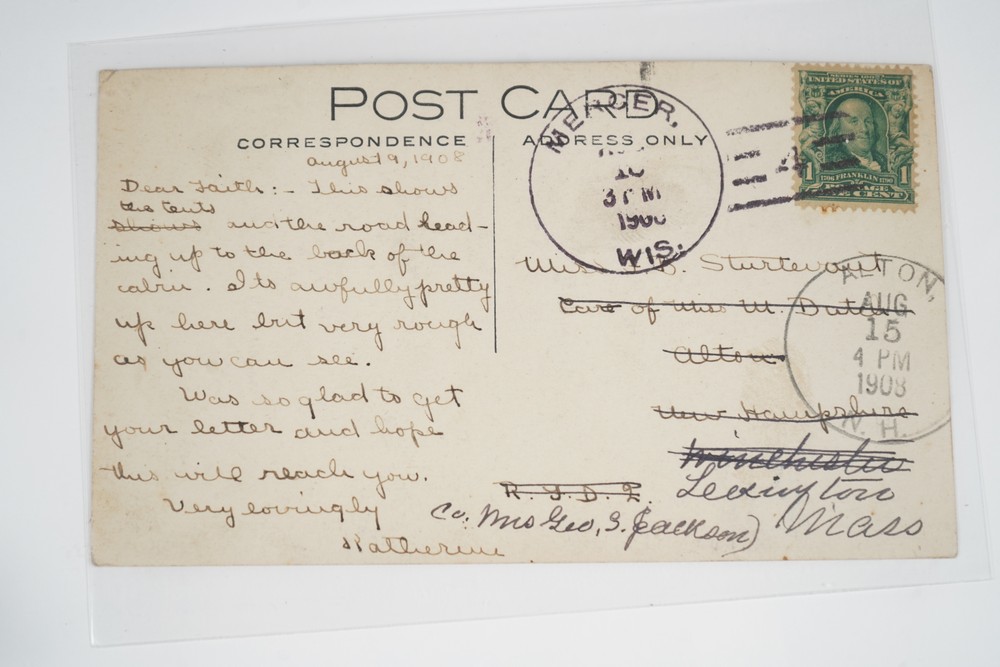 POST CARD
CORRESPONDENCE
ADDRESS ONLY
August 9, 1908
Dear Faith:- This shows
the tents
shows and the road lead-
ing up to the back of the
cabin. Its awfully pretty
up here but very rough
as you can see.
Was so glad to get
your letter and hope
this will reach you.
Very lovingly
Katherine
MERCER,
10
3 PM
1908
WIS.
4
SERIES 1902
UNITED STATES OF
AMERICA
1706 FRANKLIN 1790
1 1
POSTAGE
ONE CENT
Miss Sturtevant
Care of Miss M. Dutch
Alton
New Hampshire
Winchester
R.F.D. 2
Lexington
Co. Mrs Geo. S. Jackson) Mass
ALTON,
AUG
15
4 PM
1908
N.H.